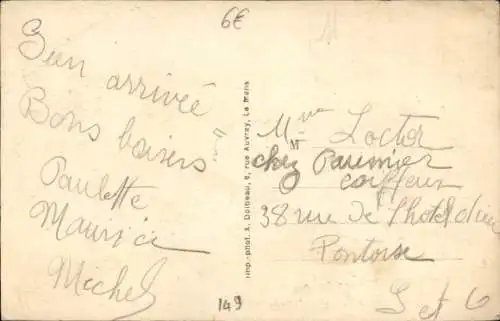 6€
Bien arrivée
Bons baisers
Paulette
Maurice
Michel
Imp.-phot. A. Dolbeau, 8, rue Auvray, Le Mans
M
Mme Loctor
chez Paumier
coiffeur
38 rue de l'hotel dieu
Pontoise
S et O
149